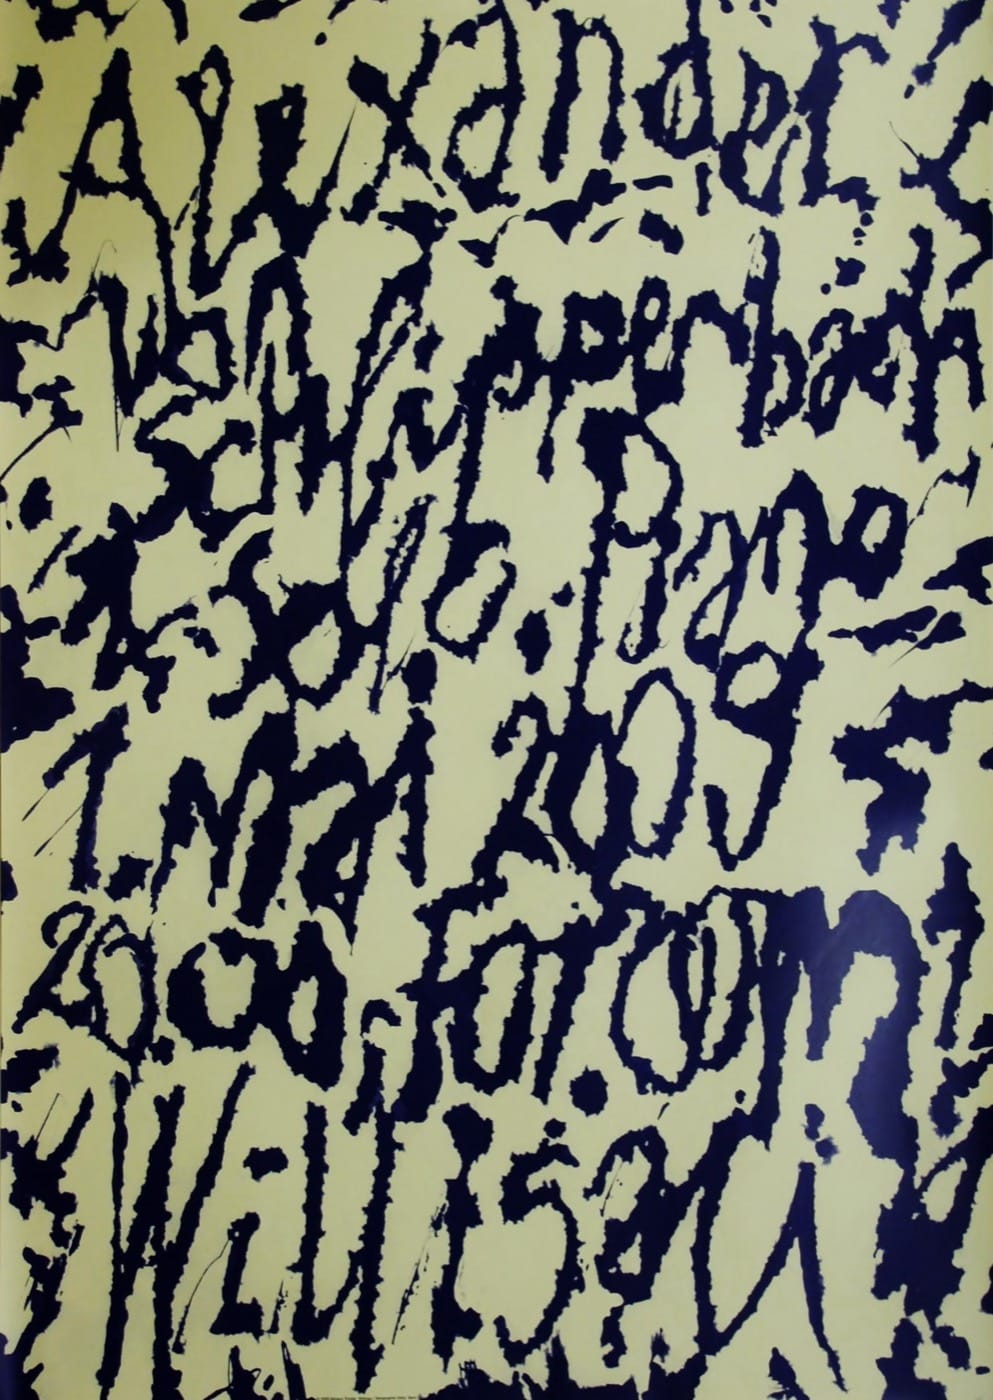 Alexander
von
Schlippenbach
Solo. Piano
1. Mai 2009
20.00, Foroom
Willisau